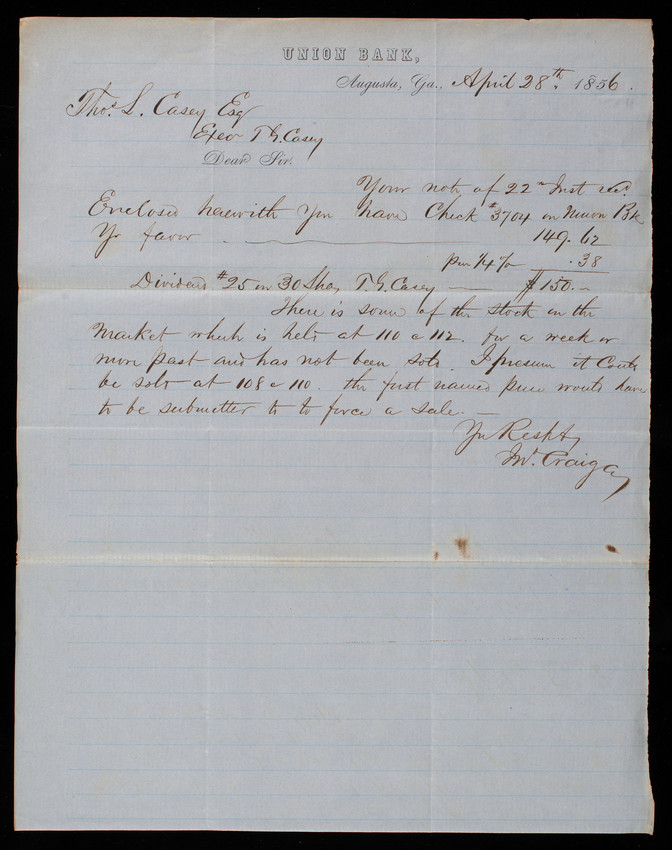 UNION BANK,
Augusta, Ga., April 28th, 1856.
Thos. L. Casey Esq
Exeor T G. Casey
Dear Sir.
Your note of 22nd Inst recd.
Enclosed herewith you have Check #3704 on Union Bk
Yr favor 149.62
prm 1/4 % .38
Dividend #25 on 30 Sha, T. G. Casey — $150.–
There is some of the stock in the
market which is held at 110 @ 112. for a week or
more past and has not been sold. I presume it Could
be sold at 108 @ 110. the first named price would have
to be submitted to to force a sale. —
Yr Respty
Jno. Craig Ca